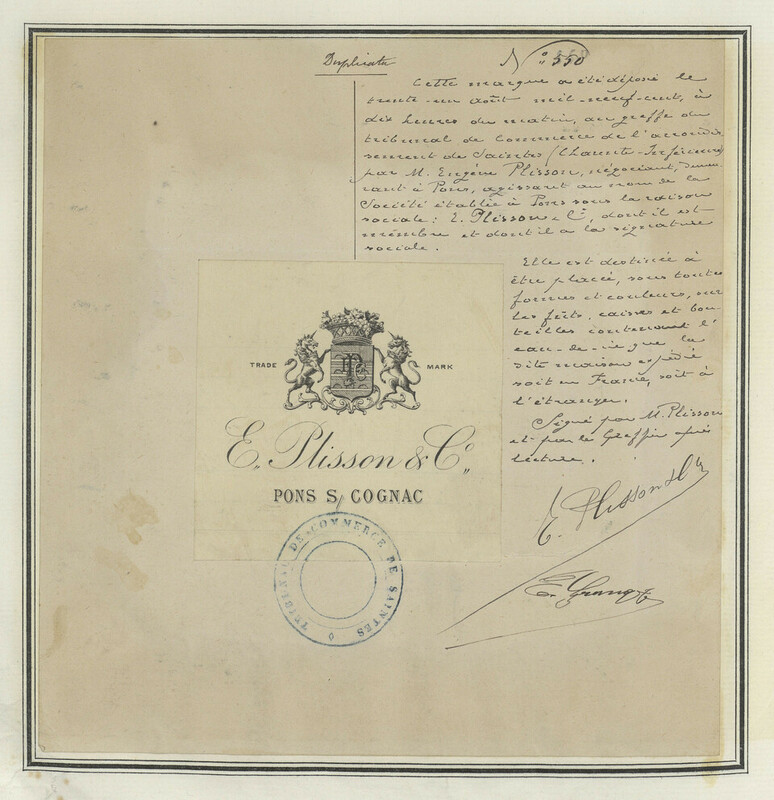 Duplicata
N° 550
Cette marque a été déposé le
trente-un août mil-neuf-cent, à
dix heures du matin, au greffe du
tribunal de Commerce de l'arrondis
sement de Saintes (Charente-Inférieure)
par M. Eugène Plisson, négociant, demeu
rant à Pons, agissant au nom de la
Société établie à Pons sous la raison
sociale: E. Plisson & Cie, dont il est
membre et dont il a la signature
sociale.
Elle est destinée à
être placée, sous toutes
formes et couleurs, sur
les fûts, caisses et bou-
teilles contenant l'
eau-de-vie que la
dite maison expédie
soit en France, soit à
l'étranger.
Signé par M. Plisson
et par le Greffier après
lecture.
TRADE MARK
E. Plisson & Co.
PONS S/ COGNAC
E. Plisson & Cie
TRIBUNAL DE COMMERCE DE SAINTES